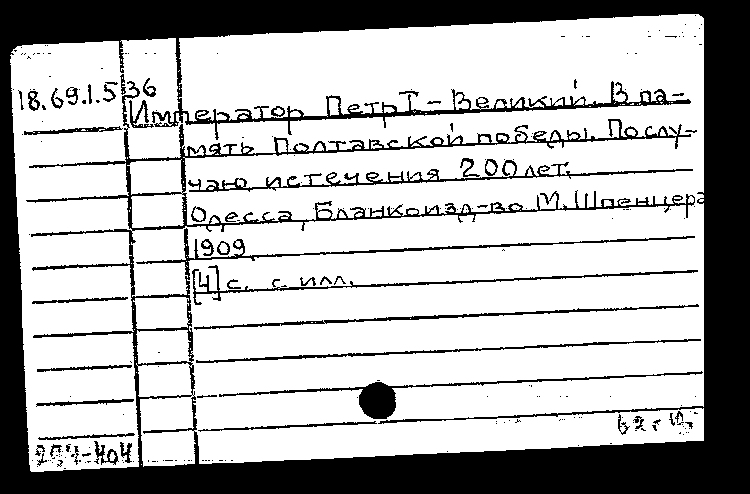 18.69.1.536
Император Петр I - Великий. В па-
мять Полтавской победы. По слу-
чаю истечения 200 лет.
Одесса, Бланкоизд-во М. Шпенцера
1909.
[4] с. с илл.